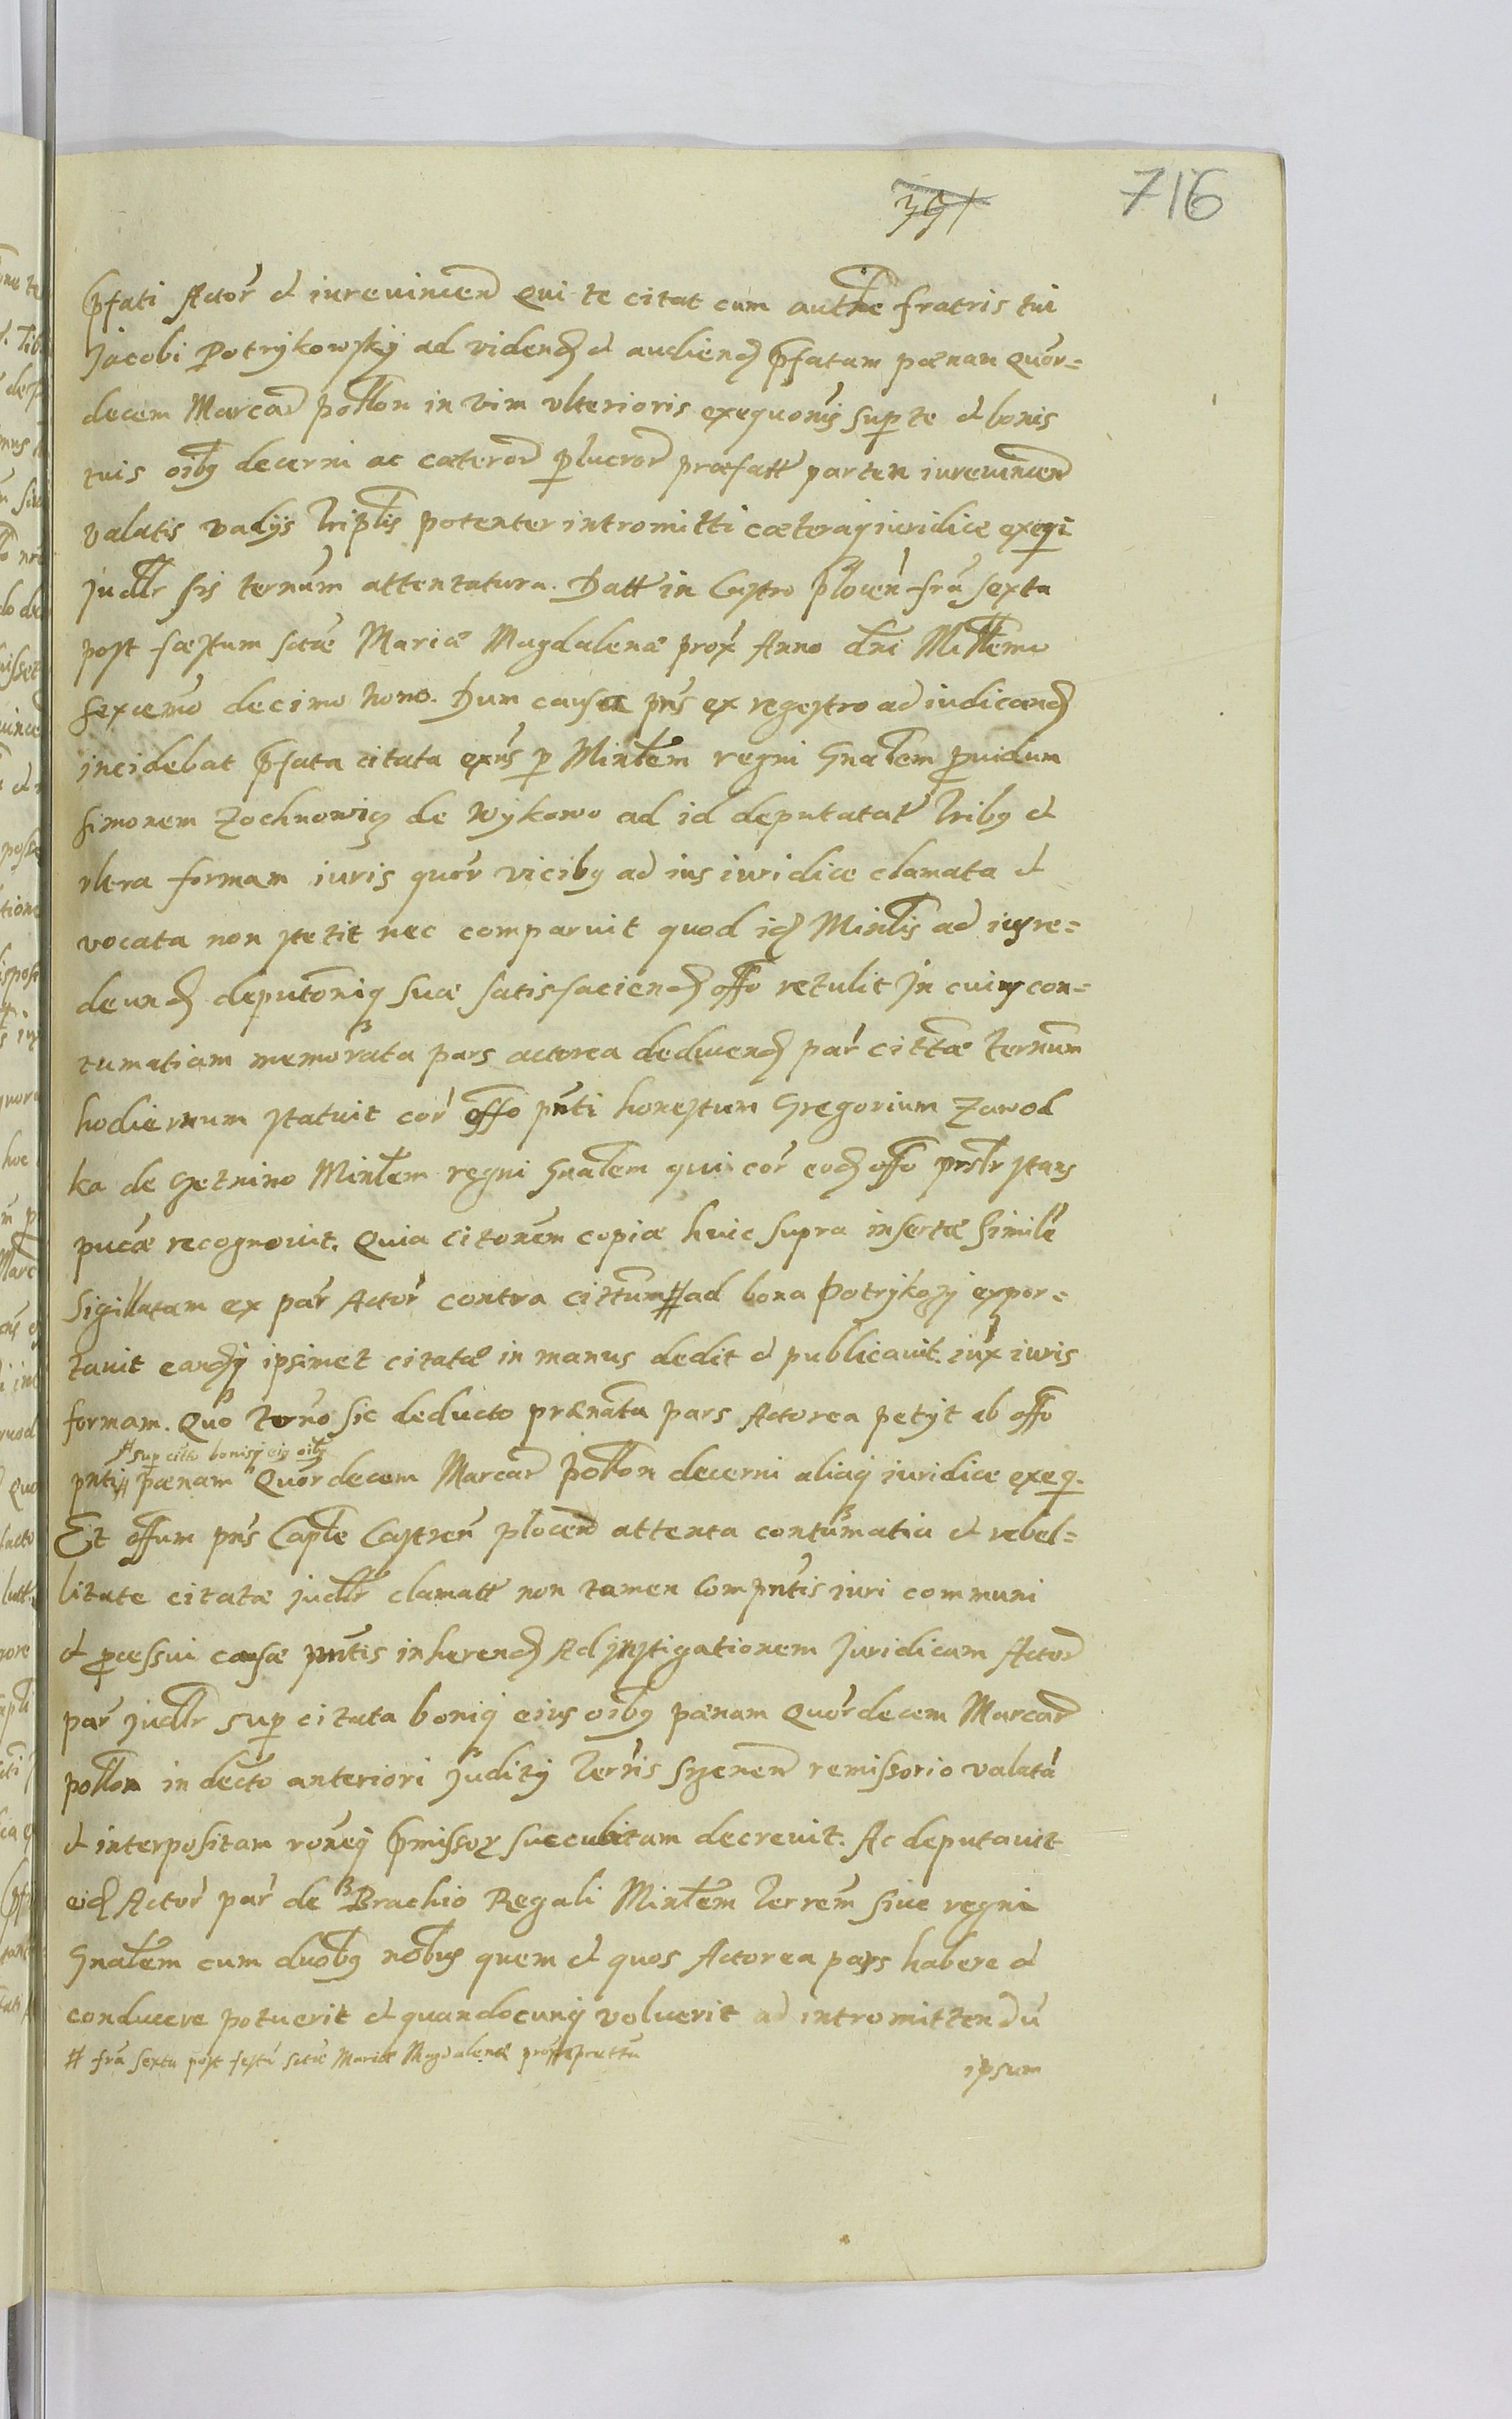 716
391
pfati Actor et iurevincen Qui te citat cum authne fratris tui
Jacobi Potrykowsky ad viden et audien pfatam pœnam Quor=
decem Marcar pollon in vim ulterioris exequonis sup te et bonis
tuis oibus decerni ac cæteror p lucror præfatt partem iurevincen
valatis vadijs triplis potenter intromitti cæteraq iuridice exeqi
Judlr sis ternum attentatura. Datt in Castro plocen fra sexta
post fæstum sctæ Mariæ Magdalenæ prox Anno dni Millemo
sexcemo decimo nono. Dum causa pns ex regestro ad iudicand
incidebat pfata citata exns p Minlem regni Gnalem pvidum
Simonem Zochnowiq de Wykowo ad id deputatat tribus et
ultra formam iuris quor vicibus ad ius iuridice clamata et
vocata non stetit nec comparuit quod id Minlis ad ius re=
deund deputoniq suæ satisfaciend offo retulit In cuius con=
tumatiam memorata pars actorea deducend par cittæ ternum
hodiernum statuit cor offo pnti honestum Gregorium Zawod
ka de Setnino Minlem regni Gnalem qui cor eod offo pnslr stans
pucæ recognovit. Quia citonem copiæ huic supra insertæ simile
Sigillatam ex par Actor contra cittum # ad bona Potrykozy expor=
tavit eandq ipsimet citatæ in manus dedit et publicavit iux iuris
formam. Quo terno sic deducto prænata pars Actorea petyt ab offo
# sup citta bonisq eius oibus
pnti # pœnam Quordecem Marcar pollon decerni aliaq iuridice exeq.
Et offum pns Caple Castren plocen attenta contumatia et rebel=
litate citatæ judlr clamatt non tamen compntis iuri communi
et pcessui causæ pntis inherend Ad instigationem Juridicam Actor
par judlr sup citata boniq eius oibus pœnam Quordecem Marcar
pollon in decto anteriori Judity terris Srzenen remissorio valata
et interpositam roneq pmissor succubitam decrevit. Ac deputavit
eid Actor par de Brachio Regali Minlem terrem sive regni
Gnalem cum duobus nobus quem et quos Actorea pars habere et
conducere potuerit et quandocunq voluerit ad intromittendu
# fra sexta post festu sctæ Mariæ Magdalenæ prox
ipsum